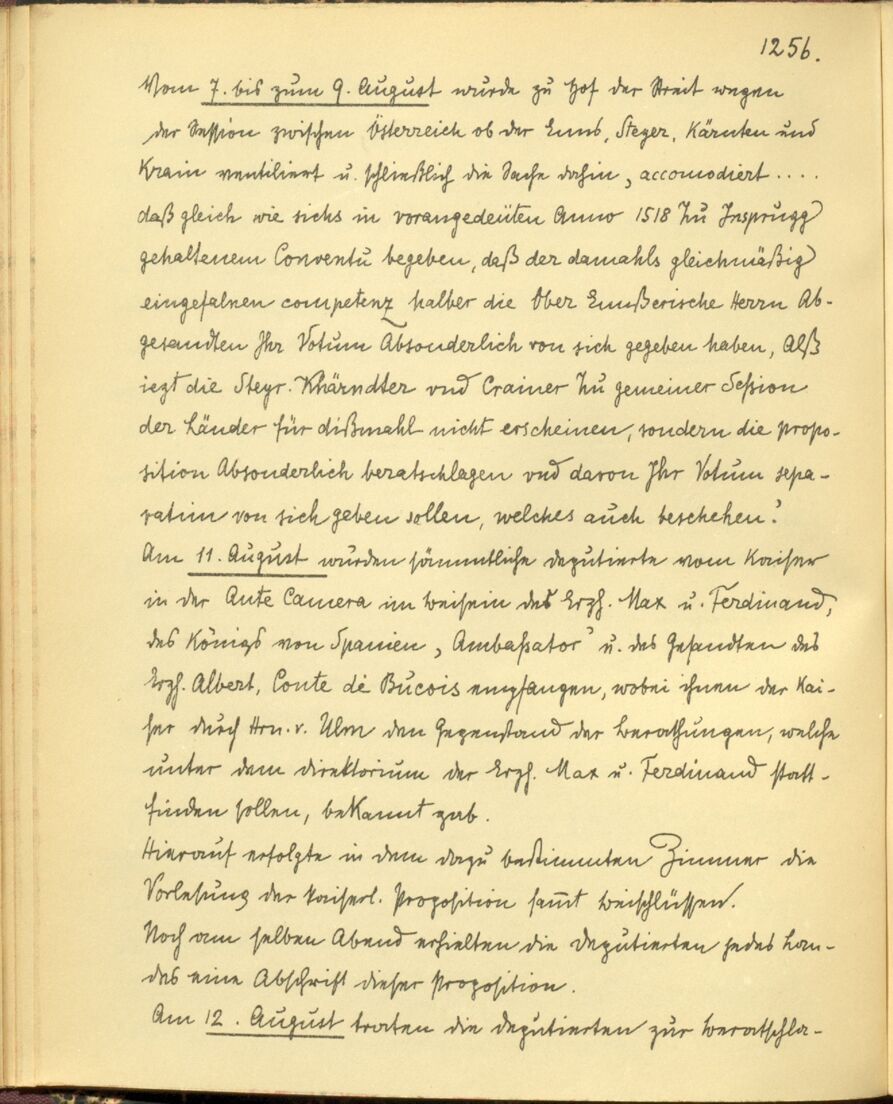 1256.
Vom 7. bis zum 9. August wurde zu Hof der Streit wegen
der Session zwischen Österreich ob der Enns, Steyer, Kärnten und
Krain ventiliert u. schließlich die Sache dahin „accomodiert ....
daß gleich wie sichs in vorangedeüten Anno 1518 Zu Insprugg
gehaltenem Conventu begeben, daß der damahls gleichmäßig
eingefalnen competenz halber die Ober Ennßerische Herrn Ab-
gesandten Ihr Votum Absonderlich von sich gegeben haben, Alß
iezt die Steyr. Khärndter vnd Crainer Zu gemeiner Seßion
der Länder für dißmahl nicht erscheinen, sondern die propo-
sition Absonderlich beratschlagen vnd davon Ihr Votum sepa-
ratim von sich geben sollen, welches auch beschehen."
Am 11. August wurden sämmtliche Deputierte vom Kaiser
in der Ante Camera im Beisein des Erzh. Max u. Ferdinand,
des Königs von Spanien „Ambaßator" u. des Gesandten des
Erzh. Albert, Conte dè Bucois empfangen, wobei ihnen der Kai-
ser durch Hrn. v. Ulm den Gegenstand der Berathungen, welche
unter dem Direktorium der Erzh. Max u. Ferdinand statt-
finden sollen, bekannt gab.
Hierauf erfolgte in dem dazu bestimmten Zimmer die
Vorlesung der kaiserl. Proposition sam̅t Beischlüssen.
Noch am selben Abend erhielten die Deputierten jedes Lan-
des eine Abschrift dieser Proposition.
Am 12. August traten die Deputierten zur Beratschla-